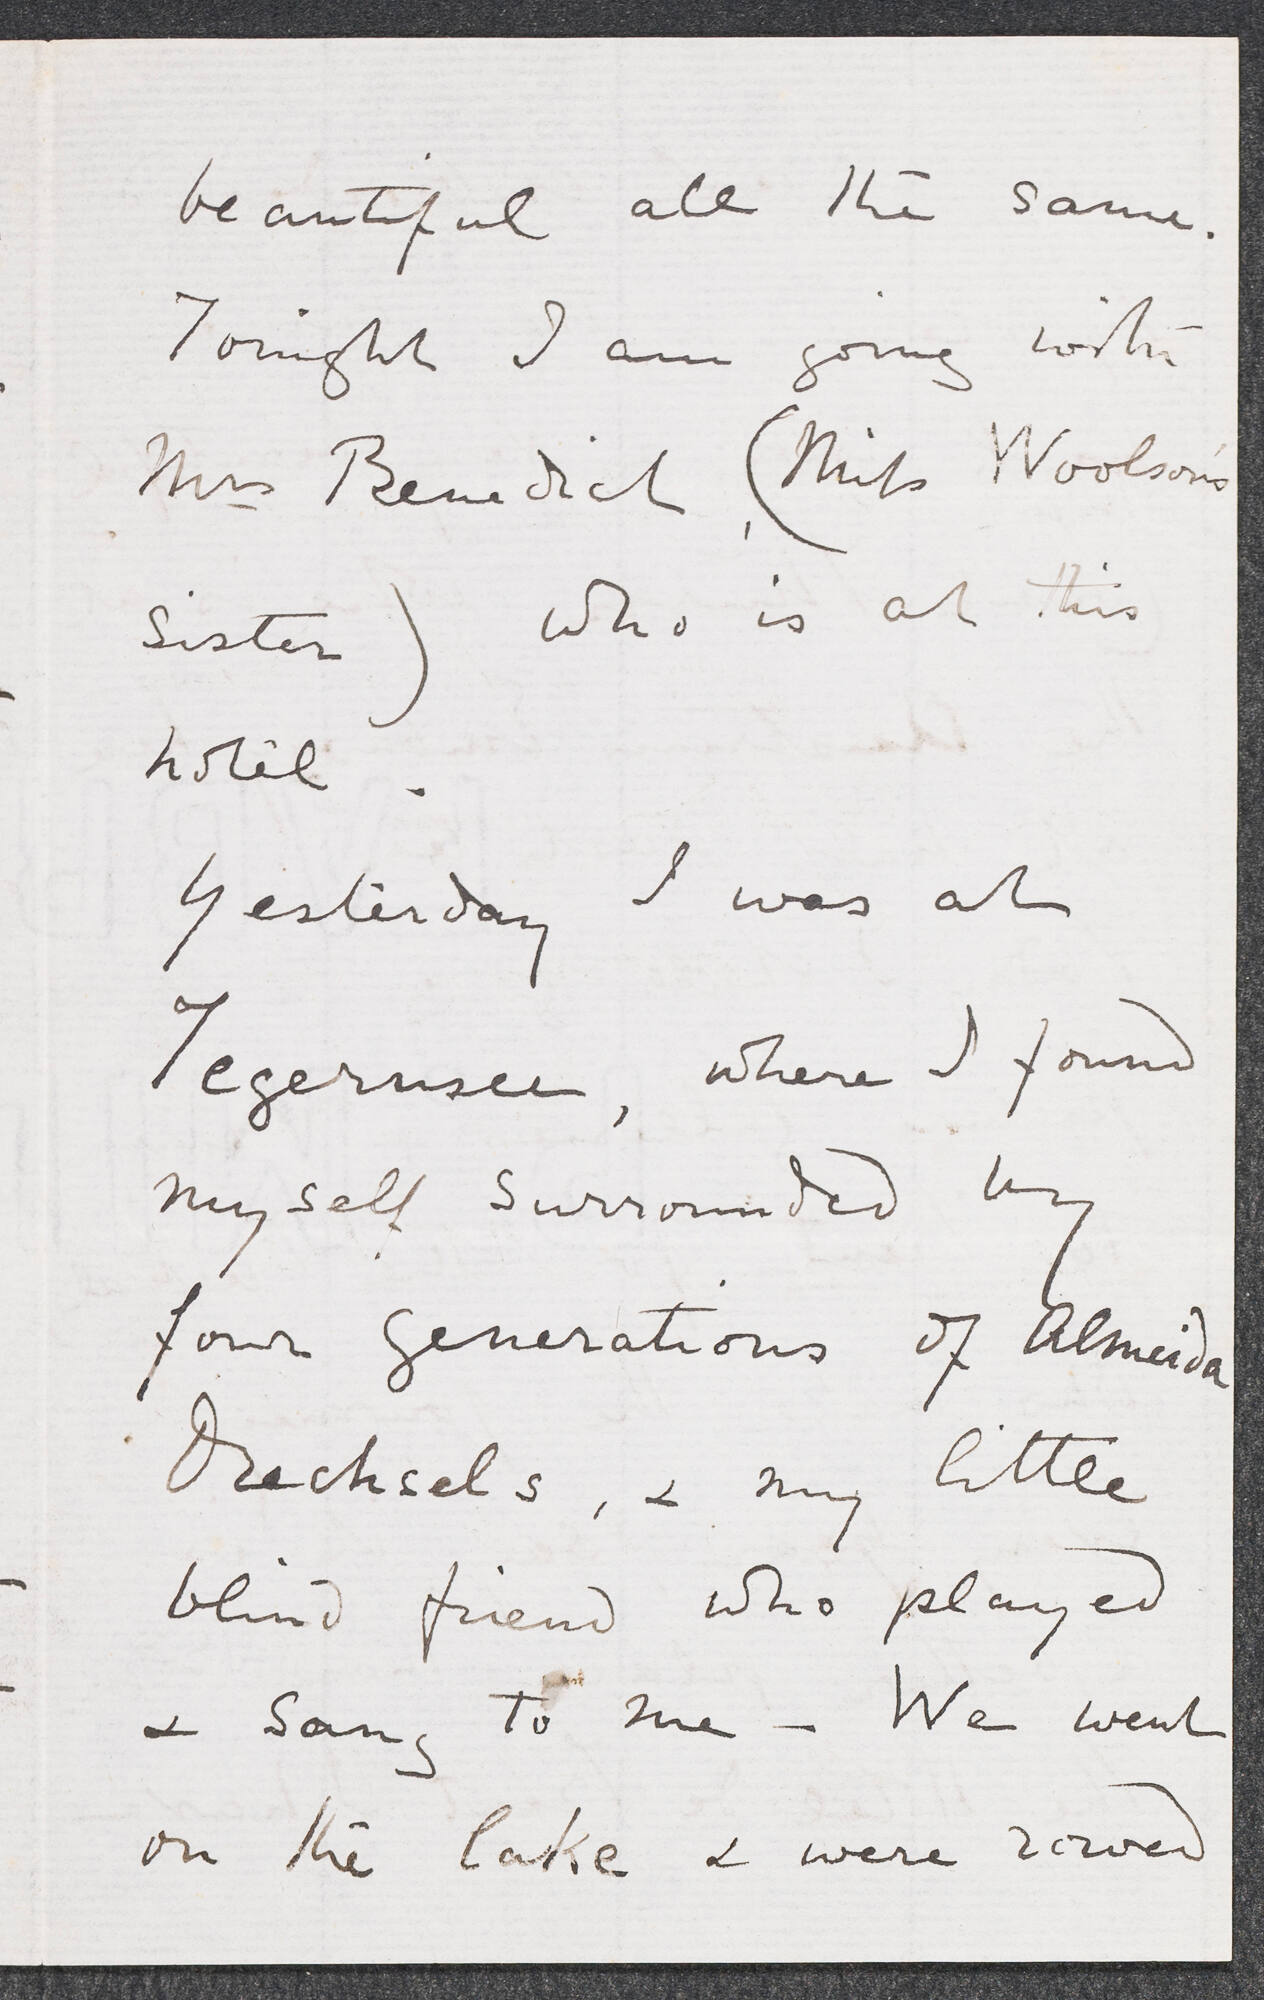 beautiful all the same.
Tonight I am going with
Mrs Benedict, (Miss Woolson's
sister) who is at this
hotel.
Yesterday I was at
Tegernsee, where I found
myself surrounded by
four generations of Almeida
Drechsels, & my little
blind friend who played
& sang to me – We went
on the lake & were rowed